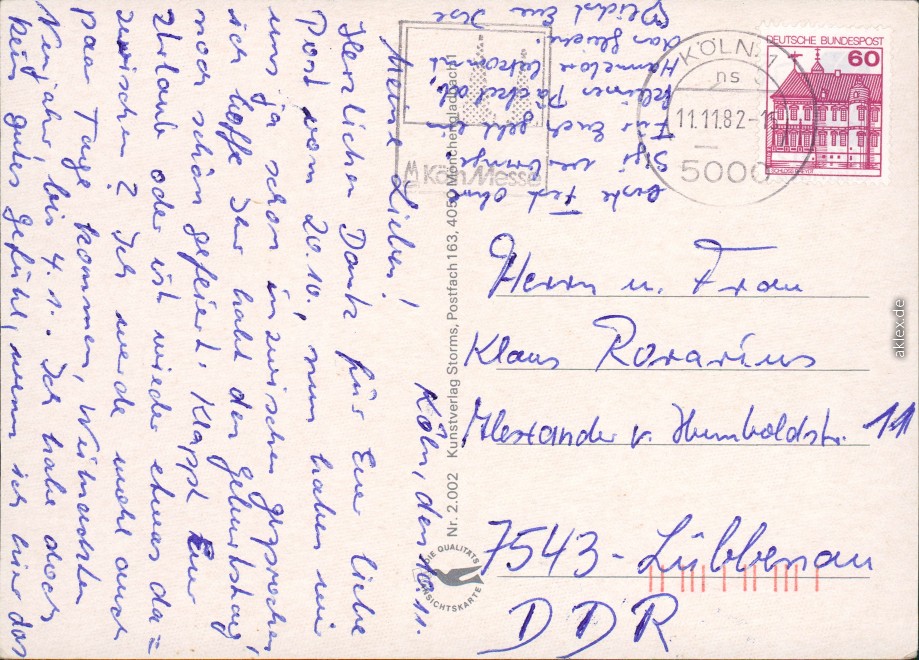 Köln, den 10.11.
Meine Lieben!
Herzlichen Dank für Eure liebe
Post vom 20.10., nun haben wir
uns ja schon inzwischen gesprochen,
ich hoffe Ihr habt den Geburtstag
noch schön gefeiert. Klappt Euer
Urlaub oder ist wieder etwas da=
zwischen? Ich werde wohl auch
paar Tage kommen, Weihnachten
Neujahr bis 4.1.. Ich habe doch
kein gutes Gefühl, wenn ich hier das
Fest ohne
Sigi verbringe.
Für Euch geht ein
kleines Päckel ab.
Hannelore bekommt
Eure Ilse
KölnMesse
KÖLN
ns
11.11.82-
5000
DEUTSCHE BUNDESPOST
60
Herrn u. Frau
Klaus Rovarius
Alexander v. Humboldstr. 11
7543-Lübbenau
DDR
Nr. 2.002 Kunstverlag Storms, Postfach 163, 4050 Mönchengladbach 1
DIE QUALITÄTS
ANSICHTSKARTE
aklex.de